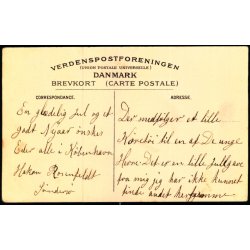 VERDENSPOSTFORENINGEN
(UNION POSTALE UNIVERSELLE)
DANMARK
BREVKORT (CARTE POSTALE)
CORRESPONDANCE.
ADRESSE.
En glædelig Jul og et
godt Nytaar ønskes
Eder alle i København
Hakon Rosenfeldt
Der medfølger et lille
til en af De unge
Herre Det er en lille Julegave
fra mig jeg har ikke kunnet
finde andet